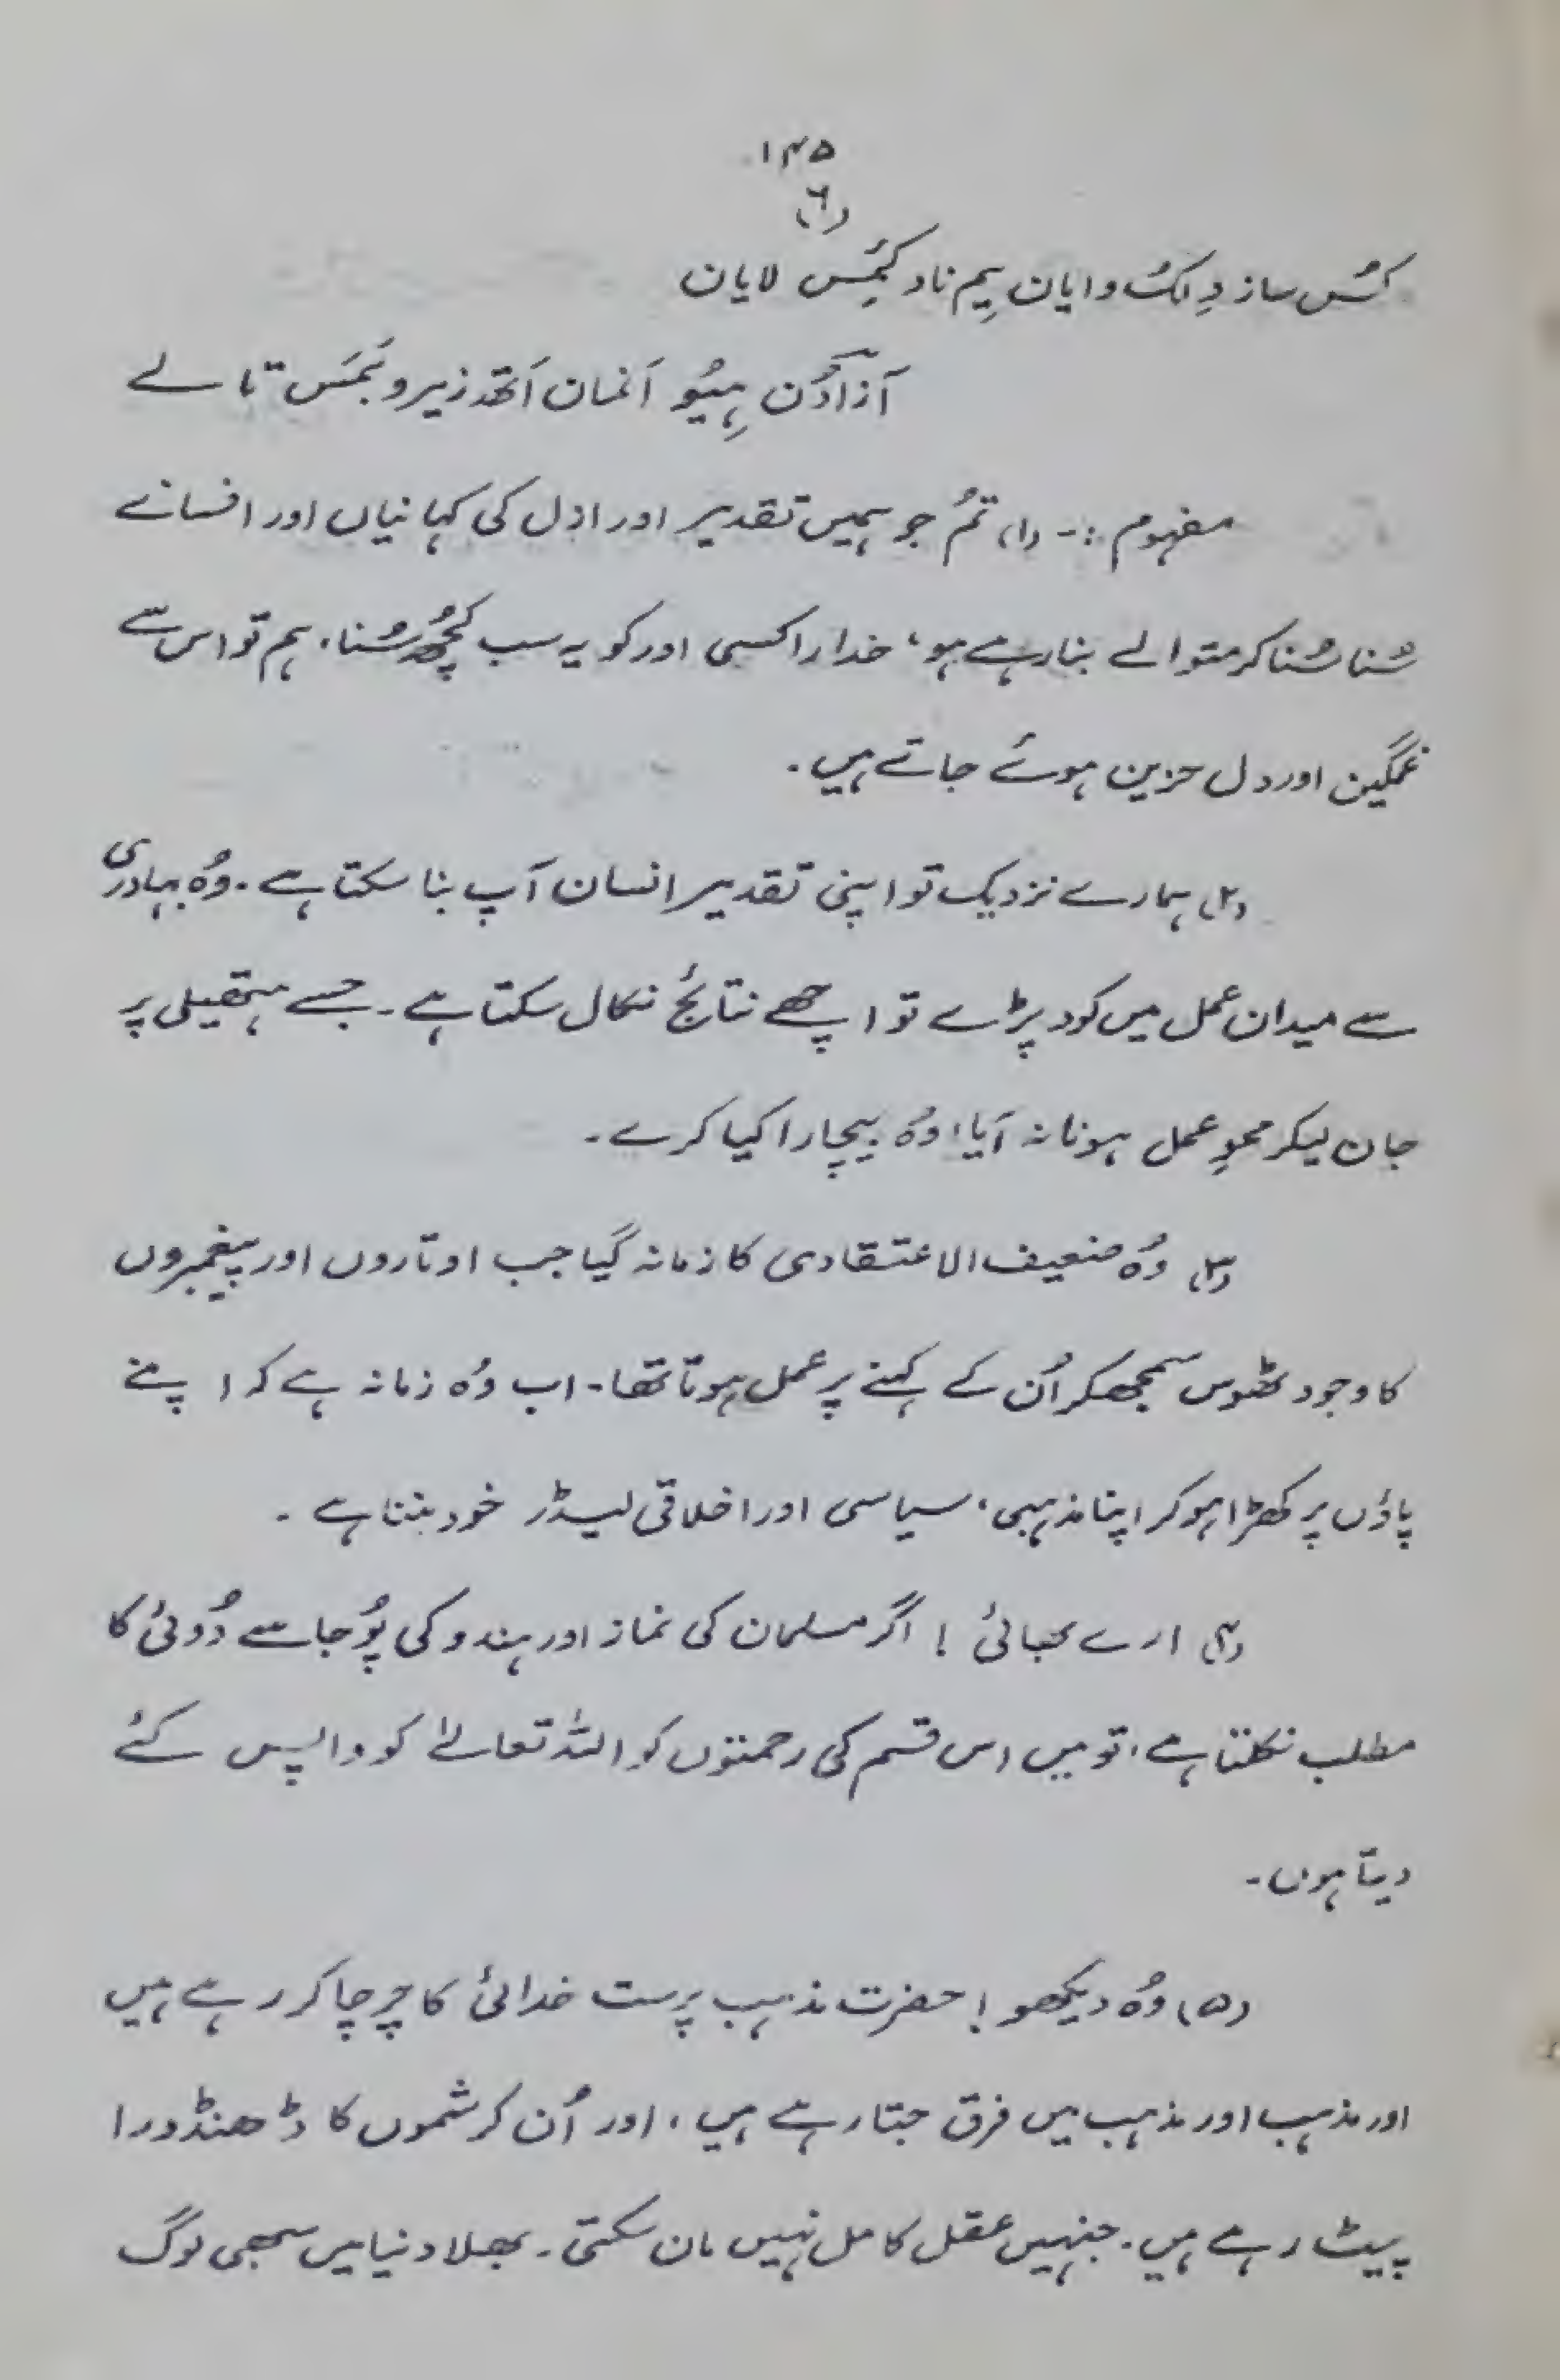 ۱۴۵
(۶)
کُس ساز دِلکُ وایان یِم ناد کیٔمِس لایان
آزادُن ہِیُو اَنمان اَتھ زیر و بَمَس تالے
مفہوم :- (۱) تُم جو ہمیں تقدیر اور ازل کی کہانیاں اور افسانے
سُنا سُنا کر متوالے بنا رہے ہو، خدارا کسی اور کو یہ سب کچُھ سُنا۔ ہم تو اس سے
غمگین اور دل حزین ہوئے جاتے ہیں۔
(۲) ہمارے نزدیک تو اپنی تقدیر انسان آپ بنا سکتا ہے۔ وُہ بہادری
سے میدان عمل میں کود پڑے تو اچھے نتائج نکال سکتا ہے۔ جسے ہتھیلی پر
جان لیکر محوِ عمل ہونا نہ آیا، وُہ بیچارا کیا کرے۔
(۳) وُہ ضعیف الاعتقادی کا زمانہ گیا جب اوتاروں اور پیغمبروں
کا وجود ٹھوس سمجھکر اُن کے کہنے پر عمل ہوتا تھا۔ اب وُہ زمانہ ہے کہ اپنے
پاؤں پر کھڑا ہو کر اپنا مذہبی، سیاسی اور اخلاقی لیڈر خود بننا ہے۔
(۴) ارے بھائی ! اگر مسلمان کی نماز اور ہندو کی پُوجا سے دُوئی کا
مطلب نکلتا ہے، تو میں اس قسم کی رحمتوں کو اللہ تعالےٰ کو واپس کئے
دیتا ہوں۔
(۵) وُہ دیکھو ! حضرت مذہب پرست خدائی کا چرچا کر رہے ہیں
اور مذہب اور مذہب میں فرق جتا رہے ہیں، اور اُن کرشموں کا ڈھنڈورا
پیٹ رہے ہیں۔ جنہیں عقل کامل نہیں مان سکتی۔ بھلا دنیا میں سبھی لوگ